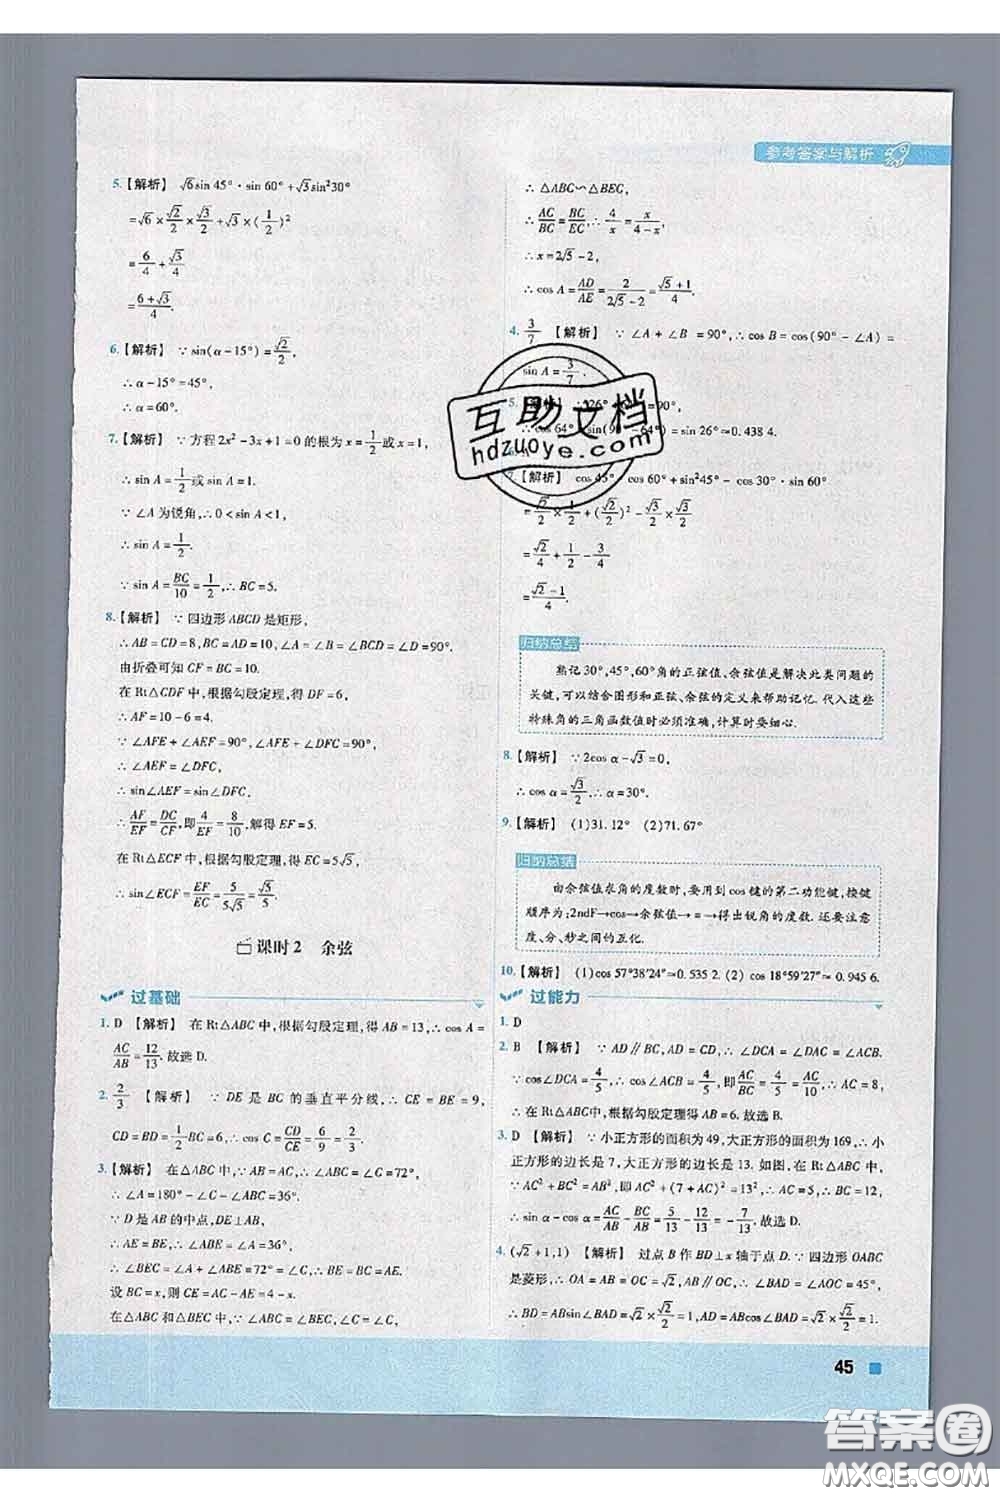 参考答案与解析
5.【解析】 √6sin 45°·sin 60°+√3sin²30°
=√6×√2/2×√3/2+√3×(1/2)²
=6/4+√3/4
=(6+√3)/4.
6.【解析】 ∵sin(α-15°)=√2/2,
∴α-15°=45°,
∴α=60°.
7.【解析】 ∵方程2x²-3x+1=0的根为x=1/2或x=1,
∴sin A=1/2或sin A=1.
∵∠A为锐角,∴0<sin A<1,
∴sin A=1/2.
∵sin A=BC/10=1/2,∴BC=5.
8.【解析】 ∵四边形ABCD是矩形,
∴AB=CD=8,BC=AD=10,∠A=∠B=∠BCD=∠D=90°.
由折叠可知CF=BC=10.
在Rt△CDF中,根据勾股定理,得DF=6,
∴AF=10-6=4.
∵∠AFE+∠AEF=90°,∠AFE+∠DFC=90°,
∴∠AEF=∠DFC,
∴sin∠AEF=sin∠DFC.
∴AF/EF=DC/CF,即4/EF=8/10,解得EF=5.
在Rt△ECF中,根据勾股定理,得EC=5√5,
∴sin∠ECF=EF/EC=5/5√5=√5/5.
课时2 余弦
过基础
1. D 【解析】 在Rt△ABC中,根据勾股定理,得AB=13,∴cos A=
AC/AB=12/13.故选D.
2. 2/3 【解析】 ∵DE是BC的垂直平分线,∴CE=BE=9,
CD=BD=1/2BC=6,∴cos C=CD/CE=6/9=2/3.
3.【解析】 在△ABC中,∵∠ABC=∠C=72°,
∴∠A=180°-∠C-∠ABC=36°.
∵D是AB的中点,DE⊥AB,
∴AE=BE,∴∠ABE=∠A=36°,
∴∠BEC=∠A+∠ABE=72°=∠C,∴BC=BE=AE.
设BC=x,则CE=AC-AE=4-x.
在△ABC和△BEC中,∵∠ABC=∠BEC,∠C=∠C,
∴△ABC∽△BEC,
∴AC/BC=BC/EC,∴4/x=x/(4-x),
∴x=2√5-2,
∴cos A=AD/AE=2/(2√5-2)=(√5+1)/4.
4. 3/7 【解析】 ∵∠A+∠B=90°,∴cos B=cos(90°-∠A)=
sin A=3/7.
5.【解析】 ∵26° =90°,
∴cos 64°=sin(90°-64°)=sin 26°≈0.438 4.
7.【解析】 cos 45°·cos 60°+sin²45°-cos 30°·sin 60°
=√2/2×1/2+(√2/2)²-√3/2×√3/2
=√2/4+1/2-3/4
=(√2-1)/4.
归纳总结
熟记30°,45°,60°角的正弦值、余弦值是解决此类问题的
关键,可以结合图形和正弦、余弦的定义来帮助记忆.代入这些
特殊角的三角函数值时必须准确,计算时要细心.
8.【解析】 ∵2cos α-√3=0,
∴cos α=√3/2,∴α=30°.
9.【解析】 (1)31.12° (2)71.67°
归纳总结
由余弦值求角的度数时,要用到cos键的第二功能键,按键
顺序为:2ndF→cos→余弦值→=→得出锐角的度数.还要注意
度、分、秒之间的互化.
10.【解析】 (1)cos 57°38′24″≈0.535 2. (2) cos 18°59′27″≈0.945 6.
过能力
1. D
2. B 【解析】 ∵AD∥BC,AD=CD,∴∠DCA=∠DAC=∠ACB.
∵cos∠DCA=4/5,∴cos∠ACB=4/5,即AC/BC=4/5=AC/10,∴AC=8,
∴在Rt△ABC中,根据勾股定理得AB=6.故选B.
3. D 【解析】 ∵小正方形的面积为49,大正方形的面积为169,∴小
正方形的边长是7,大正方形的边长是13.如图,在Rt△ABC中,
∵AC²+BC²=AB²,即AC²+(7+AC)²=13²,∴AC=5,∴BC=12,
∴sin α-cos α=AC/AB-BC/AB=5/13-12/13=-7/13.故选D.
4. (√2+1,1) 【解析】 过点B作BD⊥x轴于点D.∵四边形OABC
是菱形,∴OA=AB=OC=√2,AB∥OC,∴∠BAD=∠AOC=45°,
∴BD=ABsin∠BAD=√2×√2/2=1,AD=ABcos∠BAD=√2×√2/2=1.
45
互助文档
hdzuoye.com
答案圈
MXQE.COM